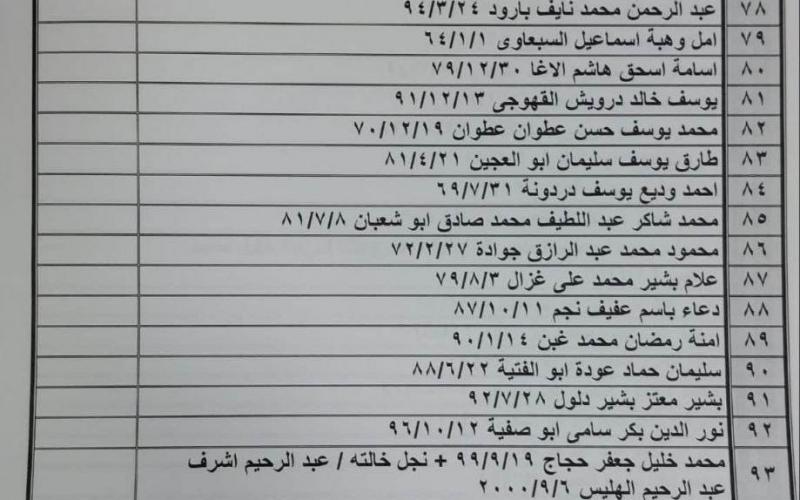 ٧٨ عبد الرحمن محمد نايف بارود ٩٤/٣/٢٤
٧٩ امل وهبة اسماعيل السبعاوى ٦٤/١/١
٨٠ اسامة اسحق هاشم الاغا ٧٩/١٢/٣٠
٨١ يوسف خالد درويش القهوجى ٩١/١٢/١٣
٨٢ محمد يوسف حسن عطوان عطوان ٧٠/١٢/١٩
٨٣ طارق يوسف سليمان ابو العجين ٨١/٤/٢١
٨٤ احمد وديع يوسف دردونة ٦٩/٧/٣١
٨٥ محمد شاكر عبد اللطيف محمد صادق ابو شعبان ٨١/٧/٨
٨٦ محمود محمد عبد الرازق جوادة ٧٢/٢/٢٧
٨٧ علام بشير محمد على غزال ٧٩/٨/٣
٨٨ دعاء باسم عفيف نجم ٨٧/١٠/١١
٨٩ امنة رمضان محمد غبن ٩٠/١/١٤
٩٠ سليمان حماد عودة ابو الفتية ٨٨/٦/٢٢
٩١ بشير معتز بشير دلول ٩٢/٧/٢٨
٩٢ نور الدين بكر سامى ابو صفية ٩٦/١٠/١٢
٩٣ محمد خليل جعفر حجاج ٩٩/٩/١٩ + نجل خالته / عبد الرحيم اشرف
عبد الرحيم الهليس ٢٠٠٠/٩/٦